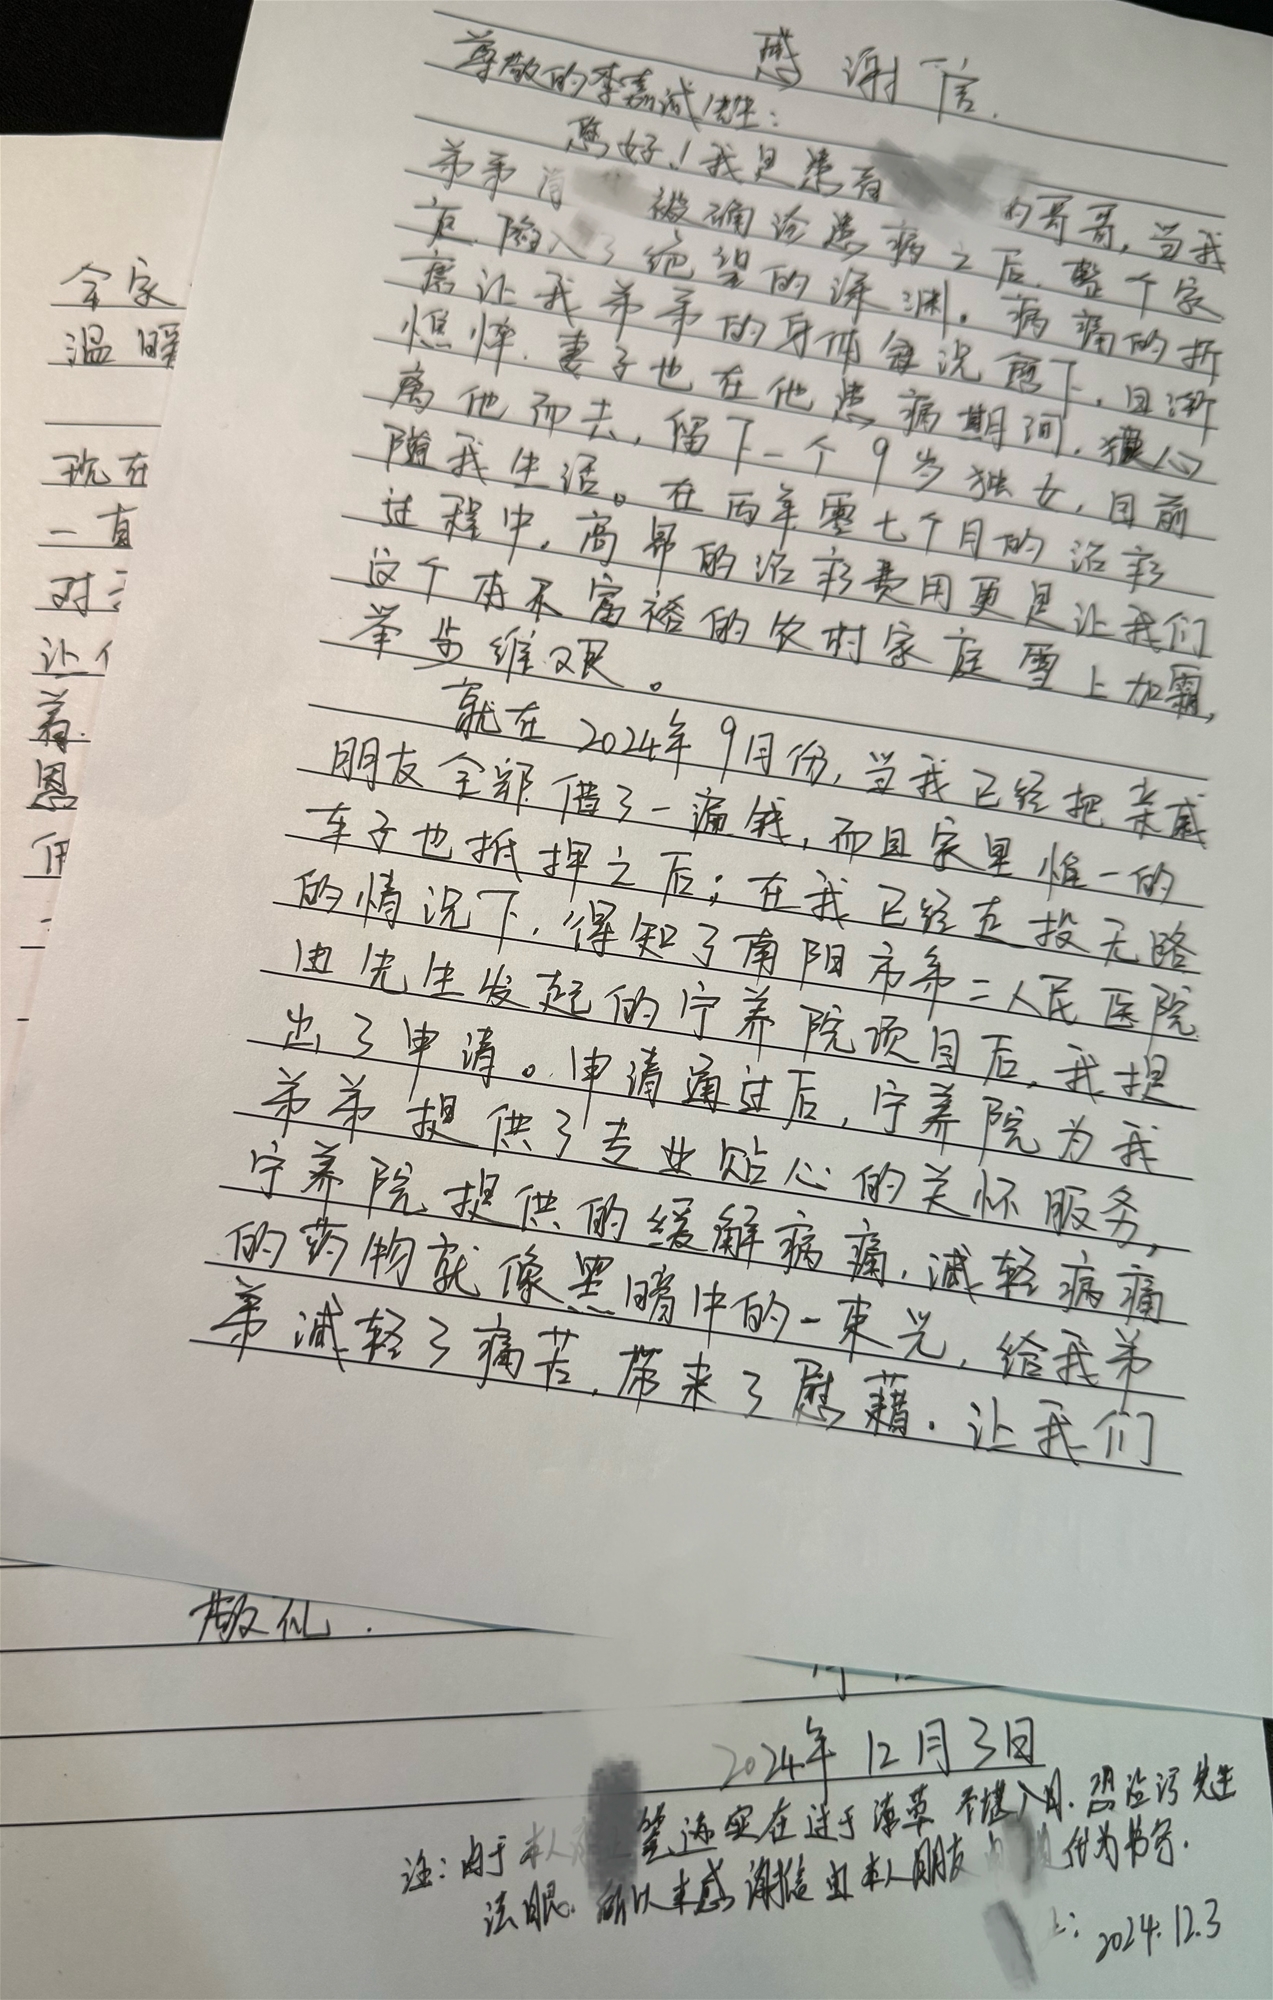 感谢信.
尊敬的李嘉诚先生:
您好!我是患者 的哥哥,当我
弟弟 被确诊患病之后,整个家
庭陷入了绝望的深渊。病痛的折
磨让我弟弟的身体每况愈下,日渐
憔悴.妻子也在他患病期间,狠心
离他而去,留下一个9岁独女,目前
随我生活。在两年零七个月的治疗
过程中,高昂的治疗费用更是让我们
这个本不富裕的农村家庭雪上加霜,
举步维艰。
就在2024年9月份,当我已经把亲戚
朋友全部借了一遍钱,而且家里惟一的
车子也抵押之后;在我已经走投无路
的情况下,得知了南阳市第二人民医院
由先生发起的宁养院项目后,我提
出了申请。申请通过后,宁养院为我
弟弟提供了专业贴心的关怀服务,
宁养院提供的缓解病痛,减轻病痛
的药物就像黑暗中的一束光,给我弟
弟减轻了痛苦,带来了慰藉.让我们
全家
温暖
现在
一直
对
让
着
恩
敬礼.
2024年12月3日
注:由于本人 笔迹实在过于潦草不堪入目.恐沾污先生
法眼.所以本感谢信由本人朋友 代为书写.
2024.12.3